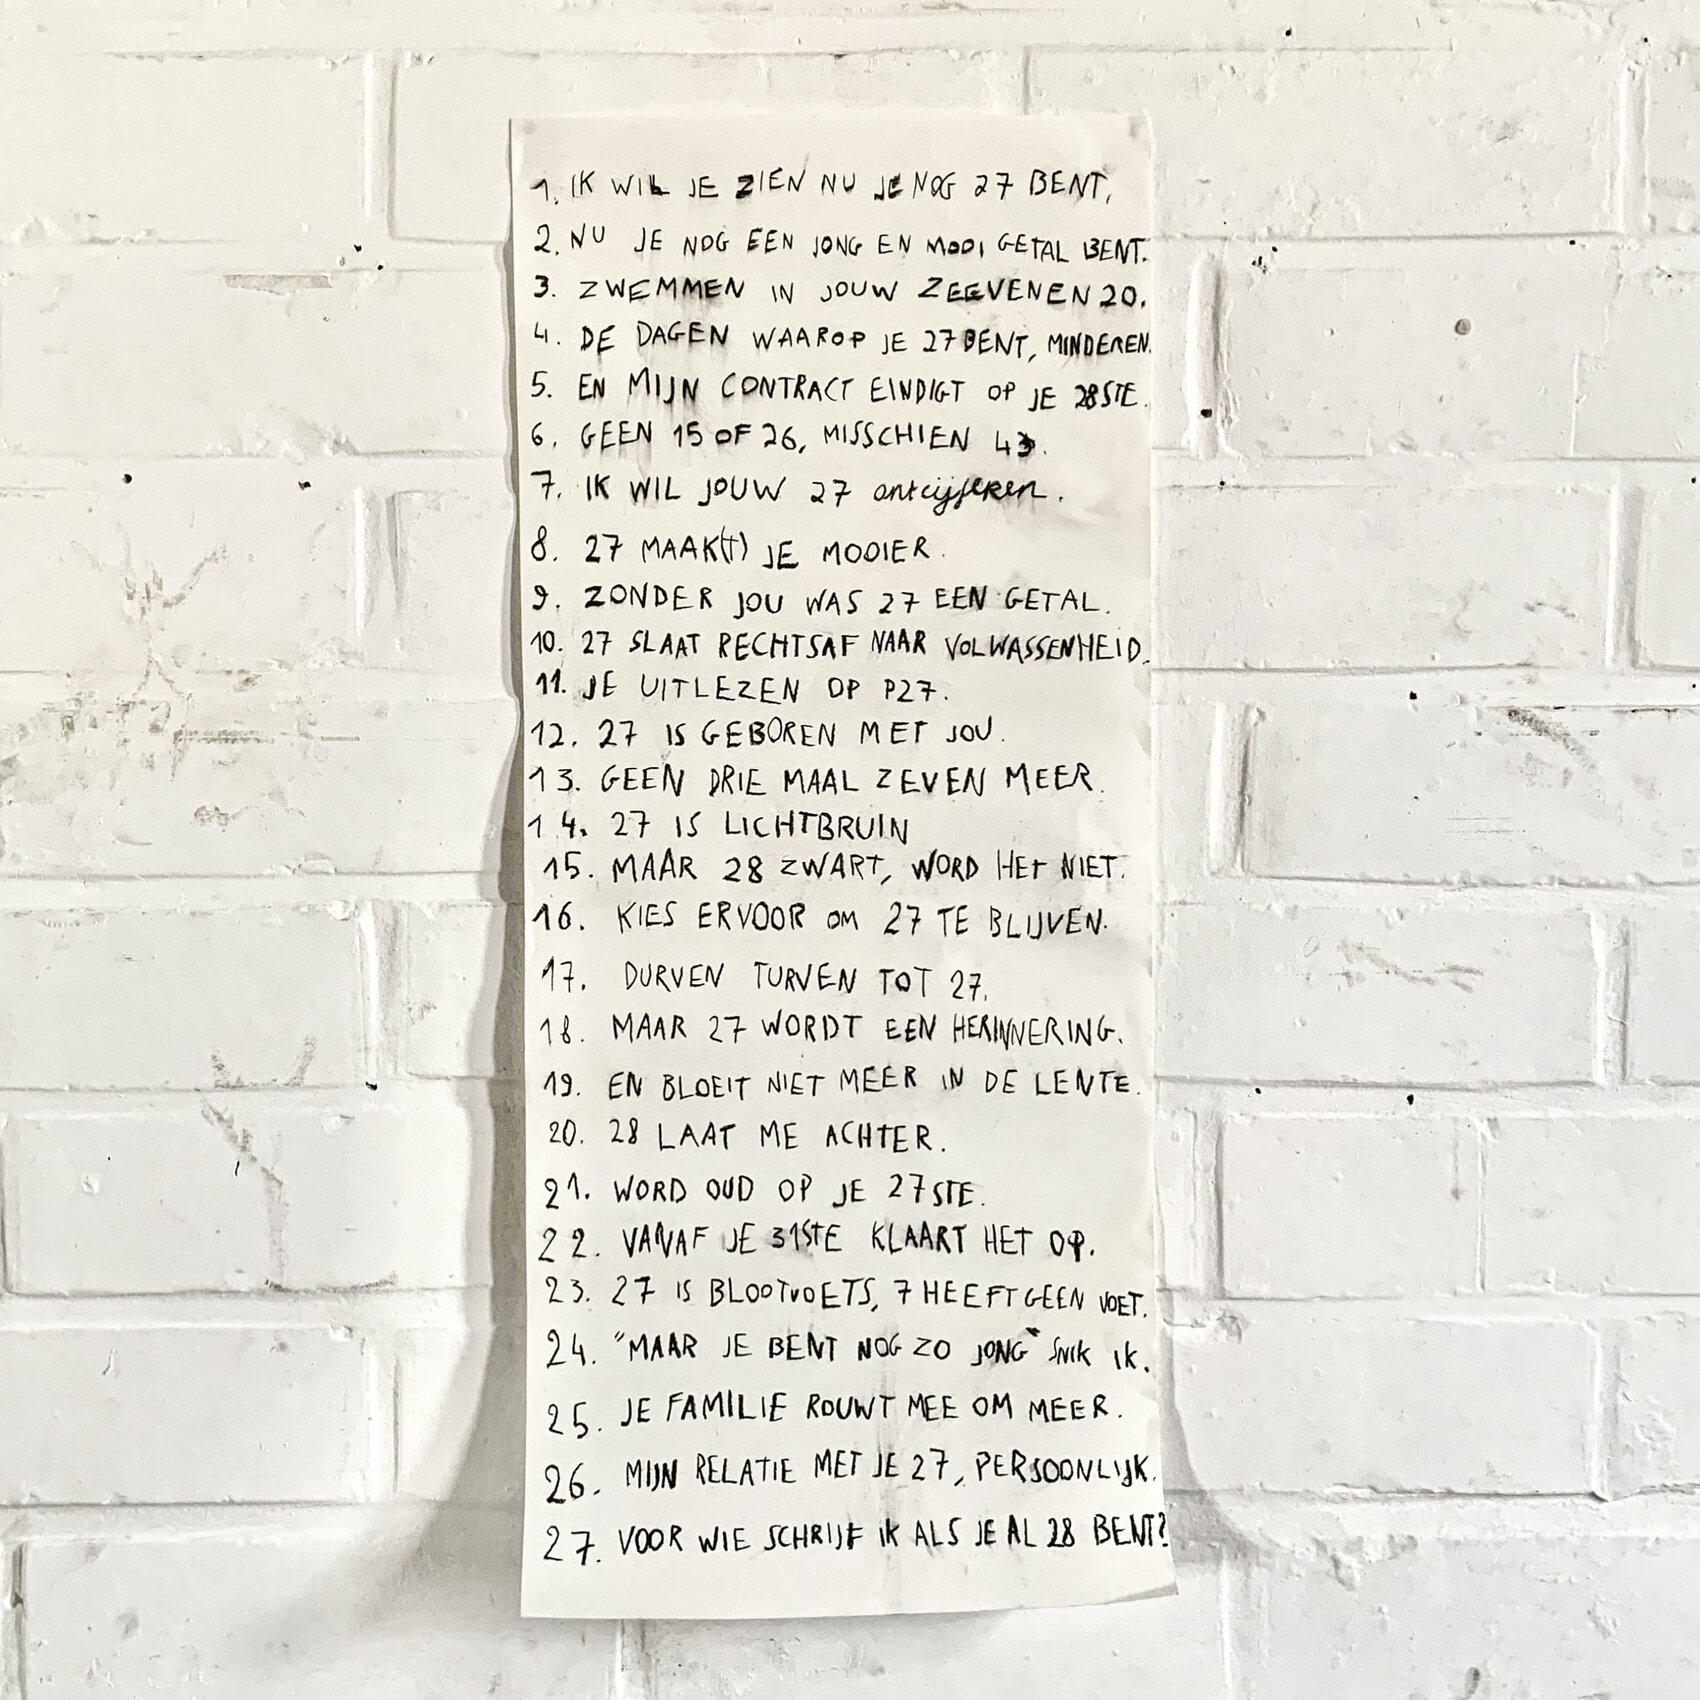 1. IK WIL JE ZIEN NU JE NOG 27 BENT,
2. NU JE NOG EEN JONG EN MOOI GETAL BENT.
3. ZWEMMEN IN JOUW ZEEVENEN 20.
4. DE DAGEN WAAROP JE 27 BENT, MINDEREN.
5. EN MIJN CONTRACT EINDIGT OP JE 28STE.
6. GEEN 15 OF 26, MISSCHIEN 43.
7. IK WIL JOUW 27 ontcijferen.
8. 27 MAAK(T) JE MOOIER.
9. ZONDER JOU WAS 27 EEN GETAL.
10. 27 SLAAT RECHTSAF NAAR VOLWASSENHEID.
11. JE UITLEZEN OP P27.
12. 27 IS GEBOREN MET JOU.
13. GEEN DRIE MAAL ZEVEN MEER.
14. 27 IS LICHTBRUIN
15. MAAR 28 ZWART, WORD HET NIET.
16. KIES ERVOOR OM 27 TE BLIJVEN.
17. DURVEN TURVEN TOT 27.
18. MAAR 27 WORDT EEN HERINNERING.
19. EN BLOEIT NIET MEER IN DE LENTE.
20. 28 LAAT ME ACHTER.
21. WORD OUD OP JE 27STE.
22. VANAF JE 31STE KLAART HET OP.
23. 27 IS BLOOTVOETS, 7 HEEFT GEEN VOET.
24. "MAAR JE BENT NOG ZO JONG" SNIK IK.
25. JE FAMILIE ROUWT MEE OM MEER.
26. MIJN RELATIE MET JE 27, PERSOONLIJK.
27. VOOR WIE SCHRIJF IK ALS JE AL 28 BENT?